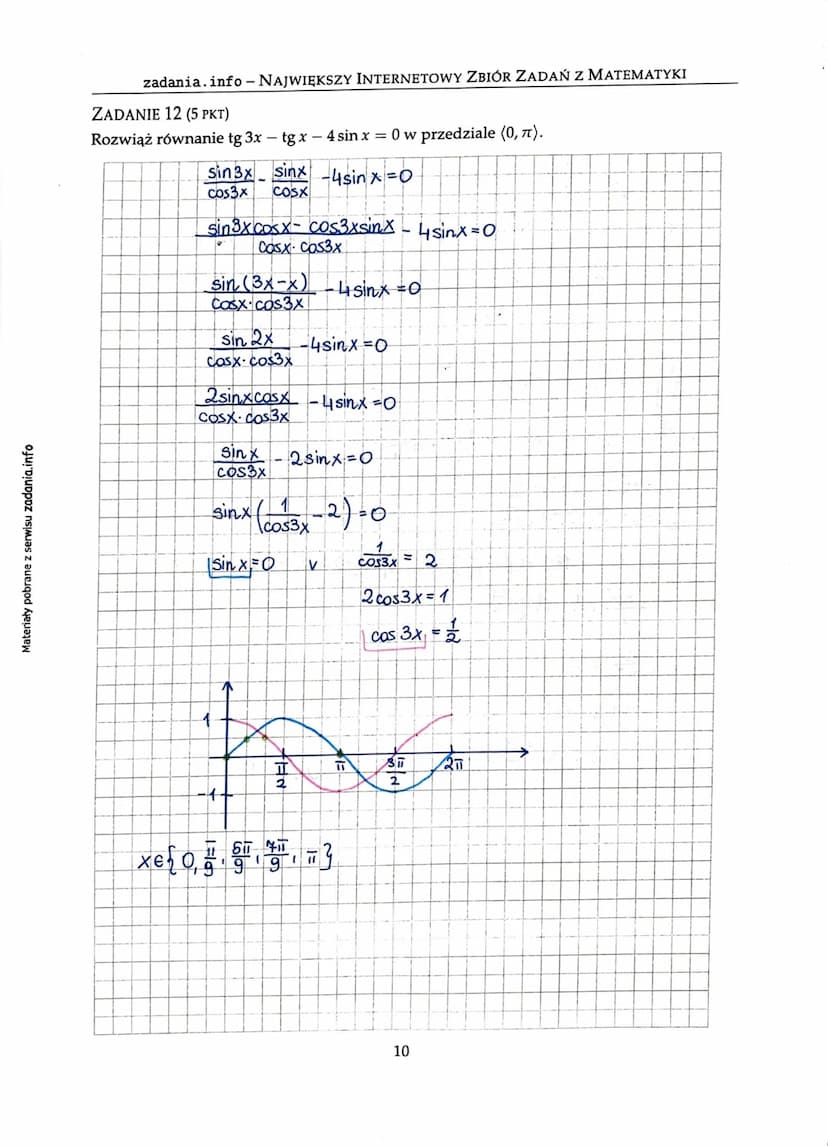 zadania.info – NAJWIĘKSZY INTERNETOWY ZBIÓR ZADAŃ Z MATEMATYKI
ZADANIE 12 (5 PKT)
Rozwiąż równanie tg 3x − tg x − 4 sin x = 0 w przedziale ⟨0, π⟩.
sin3x/cos3x - sinx/cosx - 4sin x = 0
(sin3xcosx - cos3xsinx)/(cosx · cos3x) - 4sinx = 0
sin(3x-x)/(cosx · cos3x) - 4sinx = 0
sin2x/(cosx · cos3x) - 4sinx = 0
2sinxcosx/(cosx · cos3x) - 4sinx = 0
sinx/cos3x - 2sinx = 0
sinx(1/cos3x - 2) = 0
sinx = 0 v 1/cos3x = 2
2cos3x = 1
cos 3x = 1/2
1
π/2 π 3π/2 2π
-1
x∈{0, π/9, 5π/9, 7π/9, π}
Materiały pobrane z serwisu zadania.info
10